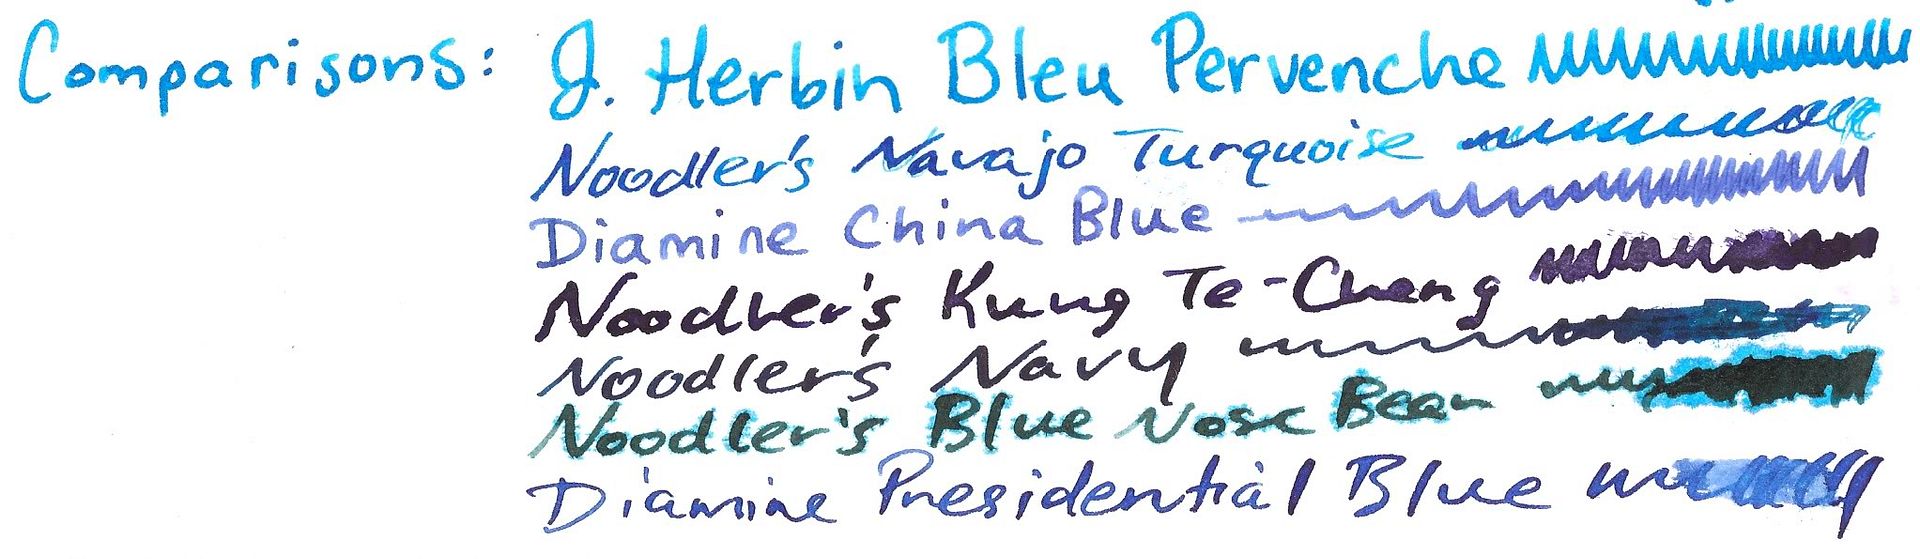 Comparisons: J. Herbin Bleu Pervenche
Noodler's Navajo Turquoise
Diamine China Blue
Noodler's Kung Te-Cheng
Noodler's Navy
Noodler's Blue Nose Bear
Diamine Presidential Blue